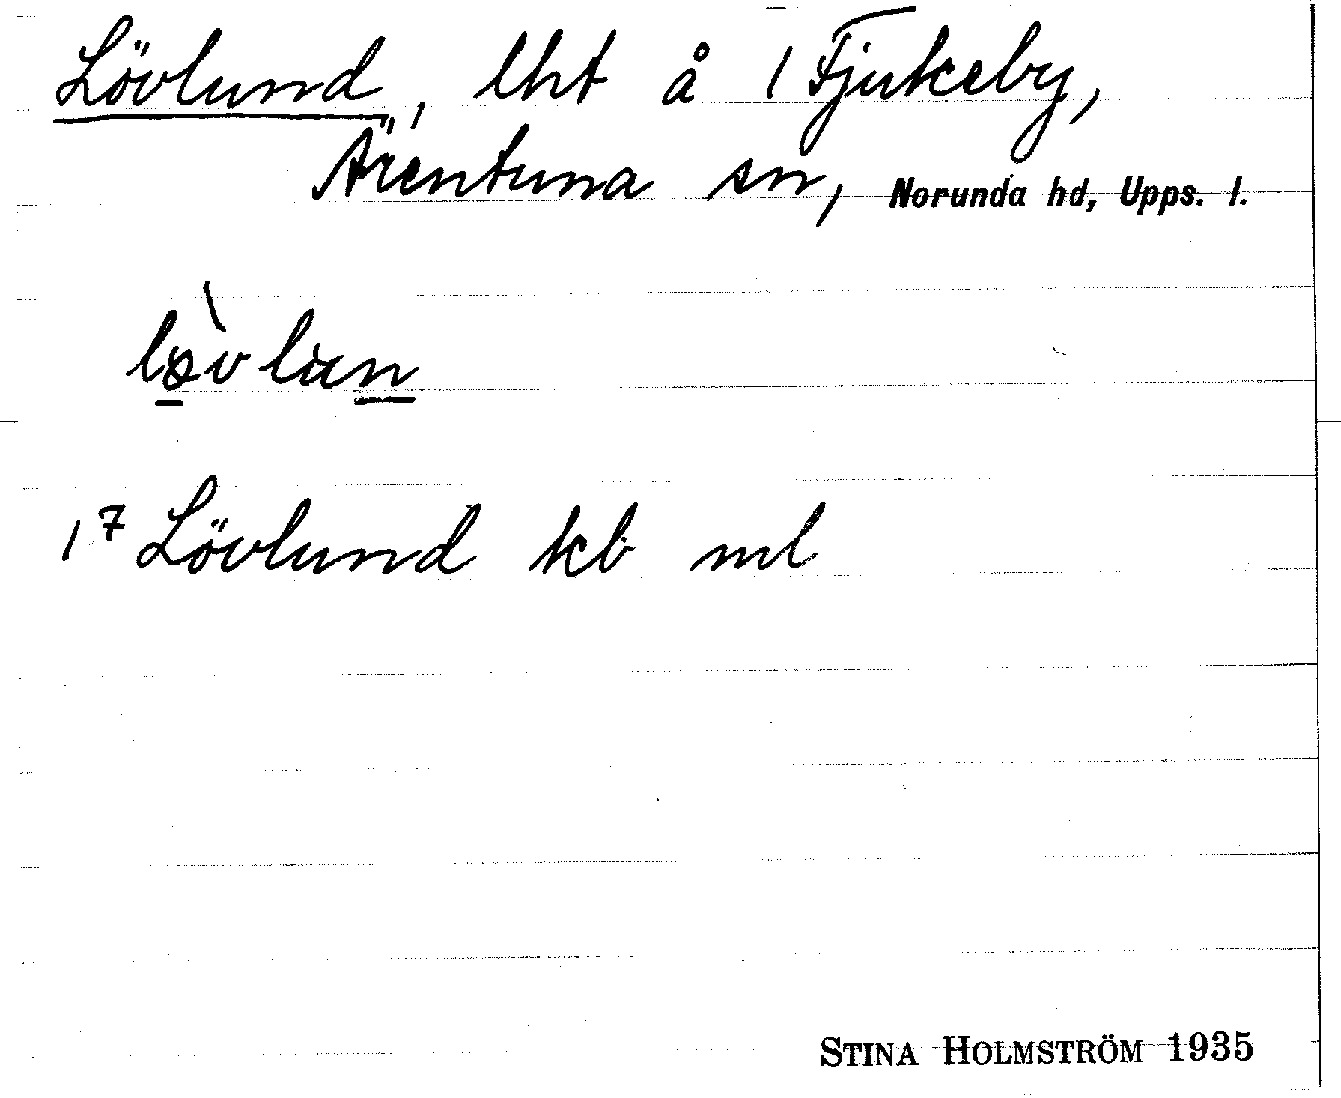 Lövlund, lht å 1 Fjukeby,
Ärentuna sn, Norunda hd, Upps. l.
lòvlun
17 Lövlund kb ml
STINA HOLMSTRÖM 1935